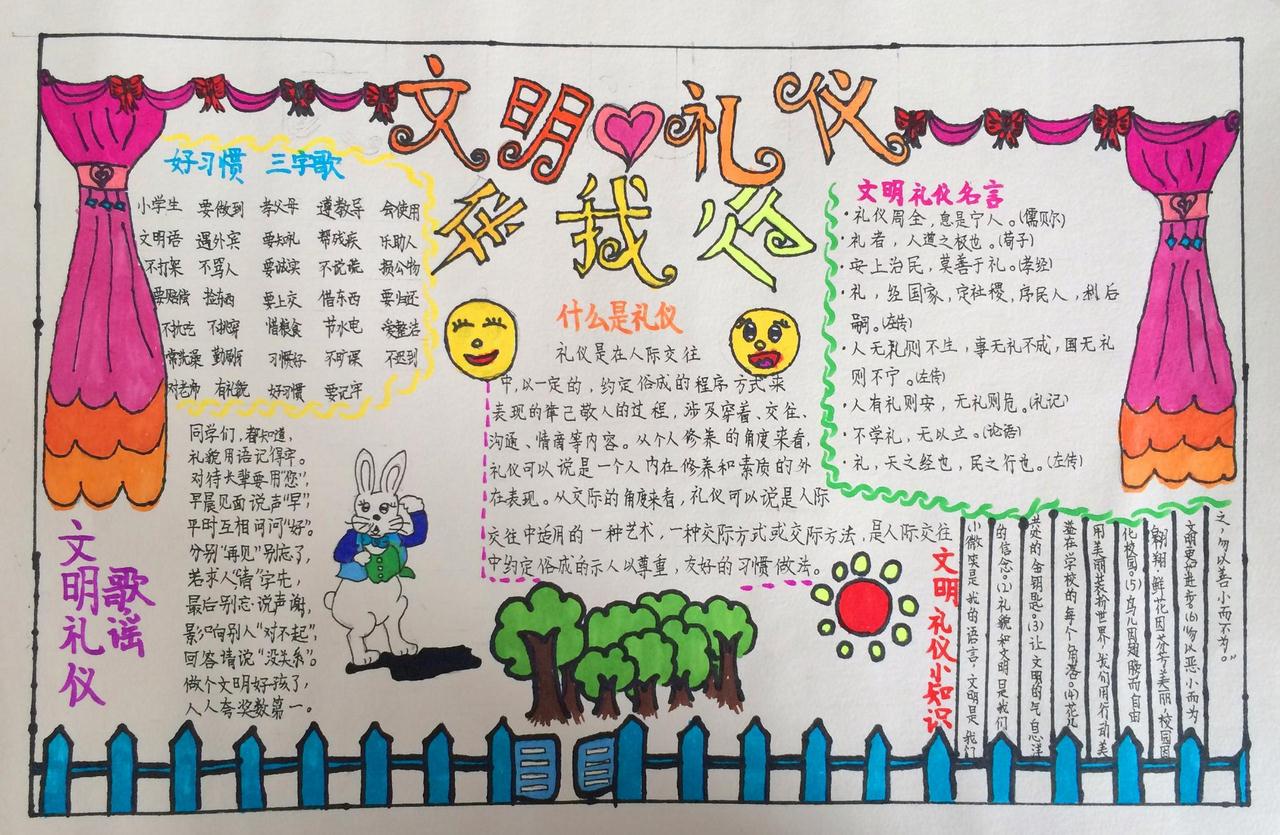 文明礼仪
伴我行
好习惯 三字歌
小学生 要做到 孝父母 遵教导 会使用
文明语 遇外宾 要知礼 帮残疾 乐助人
不打架 不骂人 要诚实 不说谎 损公物
要赔偿 拾东西 要上交 借东西 要归还
不挑吃 不挑穿 惜粮食 节水电 爱整洁
常洗澡 勤刷牙 习惯好 不旷课 不迟到
对老师 有礼貌 好习惯 要记牢
同学们,都知道,
礼貌用语记得牢。
对待长辈要用“您”,
早晨见面说声“早”,
平时互相问问“好”。
分别“再见”别忘了,
若求人“请”字先,
最后别忘说声谢,
影响别人“对不起”,
回答请说“没关系”。
做个文明好孩子,
人人夸奖数第一。
文明礼仪
歌谣
什么是礼仪
礼仪是在人际交往
中,以一定的,约定俗成的程序方式来
表现的律己敬人的过程,涉及穿着、交往、
沟通、情商等内容。从个人修养的角度来看,
礼仪可以说是一个人内在修养和素质的外
在表现。从交际的角度来看,礼仪可以说是人际
交往中适用的一种艺术,一种交际方式或交际方法,是人际交往
中约定俗成的示人以尊重,友好的习惯做法。
文明礼仪名言
·礼仪周全,息是宁人。(儒贝尔)
·礼者,人道之极也。(荀子)
·安上治民,莫善于礼。(孝经)
·礼,经国家,定社稷,序民人,利后
嗣。(左传)
·人无礼则不生,事无礼不成,国无礼
则不宁。(左传)
·人有礼则安,无礼则危。(礼记)
·不学礼,无以立。(论语)
·礼,天之经也,民之行也。(左传)
文明礼仪小知识
之,勿以善小而不为。”
文明更加进步。(6)“勿以恶小而为
翱翔,鲜花因芬芳美丽,校园因
化校园。(5)鸟儿因翅膀而自由
用美丽装扮世界,我们用行动美
荡在学校的每个角落。(4)花儿
共处的金钥匙。(3)让文明的气息洋
的信念。(2)礼貌和文明是我们
小微笑是我的语言,文明是我们